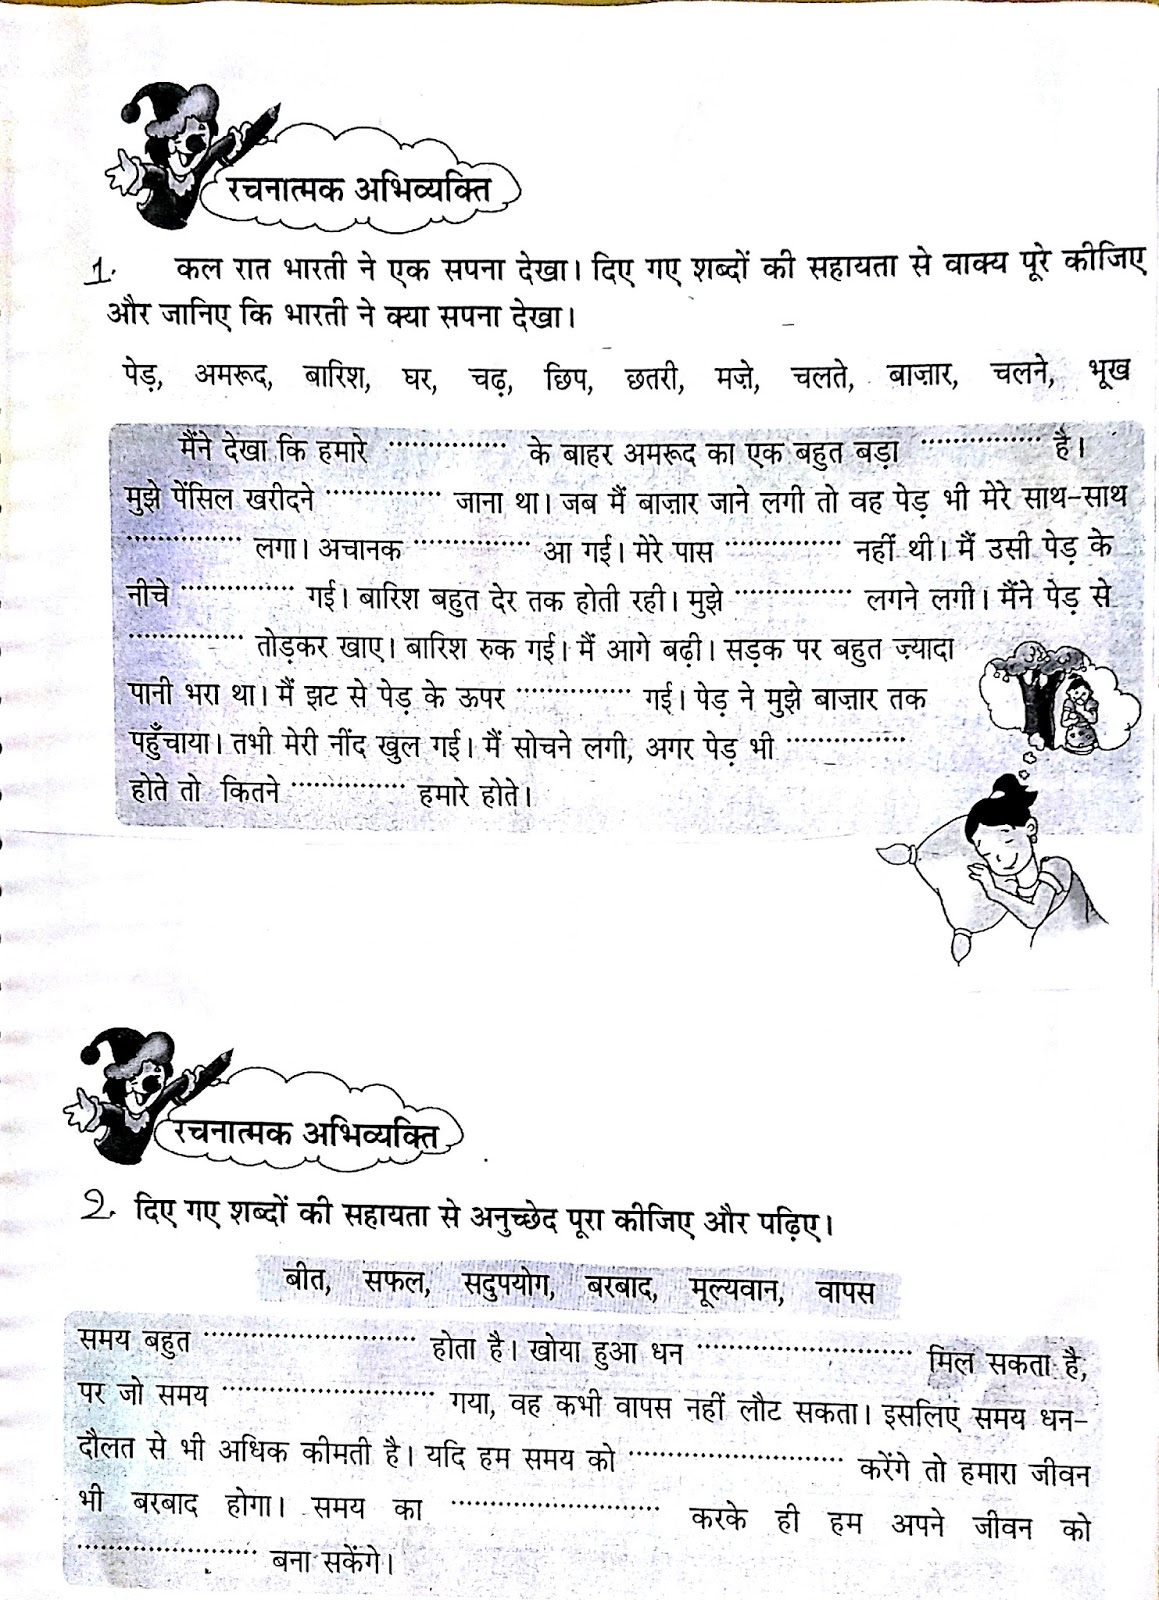 रचनात्मक अभिव्यक्ति
1. कल रात भारती ने एक सपना देखा। दिए गए शब्दों की सहायता से वाक्य पूरे कीजिए
और जानिए कि भारती ने क्या सपना देखा।
पेड़, अमरूद, बारिश, घर, चढ़, छिप, छतरी, मज़े, चलते, बाज़ार, चलने, भूख
मैंने देखा कि हमारे ................ के बाहर अमरूद का एक बहुत बड़ा ................ है।
मुझे पेंसिल खरीदने ................ जाना था। जब मैं बाज़ार जाने लगी तो वह पेड़ भी मेरे साथ-साथ
................ लगा। अचानक ................ आ गई। मेरे पास ................ नहीं थी। मैं उसी पेड़ के
नीचे ................ गई। बारिश बहुत देर तक होती रही। मुझे ................ लगने लगी। मैंने पेड़ से
................ तोड़कर खाए। बारिश रुक गई। मैं आगे बढ़ी। सड़क पर बहुत ज़्यादा
पानी भरा था। मैं झट से पेड़ के ऊपर ................ गई। पेड़ ने मुझे बाज़ार तक
पहुँचाया। तभी मेरी नींद खुल गई। मैं सोचने लगी, अगर पेड़ भी ................
होते तो कितने ................ हमारे होते।
रचनात्मक अभिव्यक्ति
2. दिए गए शब्दों की सहायता से अनुच्छेद पूरा कीजिए और पढ़िए।
बीत, सफल, सदुपयोग, बरबाद, मूल्यवान, वापस
समय बहुत .............................. होता है। खोया हुआ धन .............................. मिल सकता है,
पर जो समय .............................. गया, वह कभी वापस नहीं लौट सकता। इसलिए समय धन-
दौलत से भी अधिक कीमती है। यदि हम समय को .............................. करेंगे तो हमारा जीवन
भी बरबाद होगा। समय का .............................. करके ही हम अपने जीवन को
.......................... बना सकेंगे।